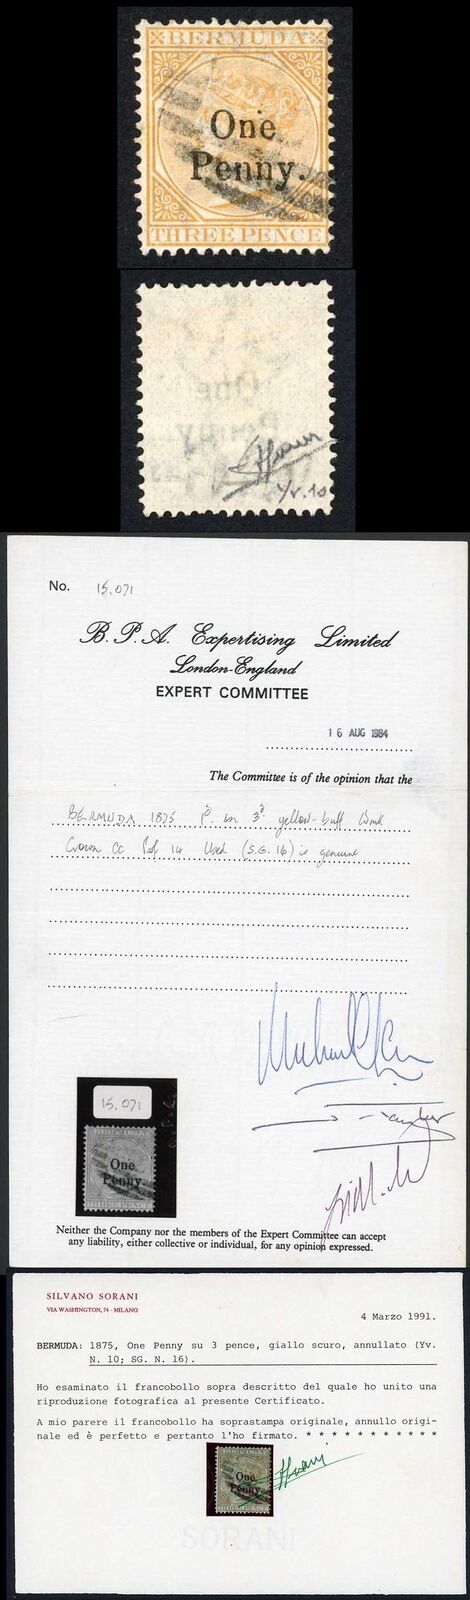 BERMUDA
One
Penny.
THREE PENCE
One
Penny
Yv. 10
No. 15,071
B.P.A. Expertising Limited
London-England
EXPERT COMMITTEE
16 AUG 1984
The Committee is of the opinion that the
BERMUDA 1875 1d. on 3d. yellow-buff wmk
Crown CC Perf 14 Used (S.G. 16) is genuine
15,071
BERMUDA
One
Penny.
THREE PENCE
Neither the Company nor the members of the Expert Committee can accept
any liability, either collective or individual, for any opinion expressed.
SILVANO SORANI
VIA WASHINGTON, 74 - MILANO
4 Marzo 1991.
BERMUDA: 1875, One Penny su 3 pence, giallo scuro, annullato (Yv.
N. 10; SG. N. 16).
Ho esaminato il francobollo sopra descritto del quale ho unito una
riproduzione fotografica al presente Certificato.
A mio parere il francobollo ha soprastampa originale, annullo origi-
nale ed è perfetto e pertanto l'ho firmato. * * * * * * * * * * *
One
Penny.
THREE PENCE
SORANI